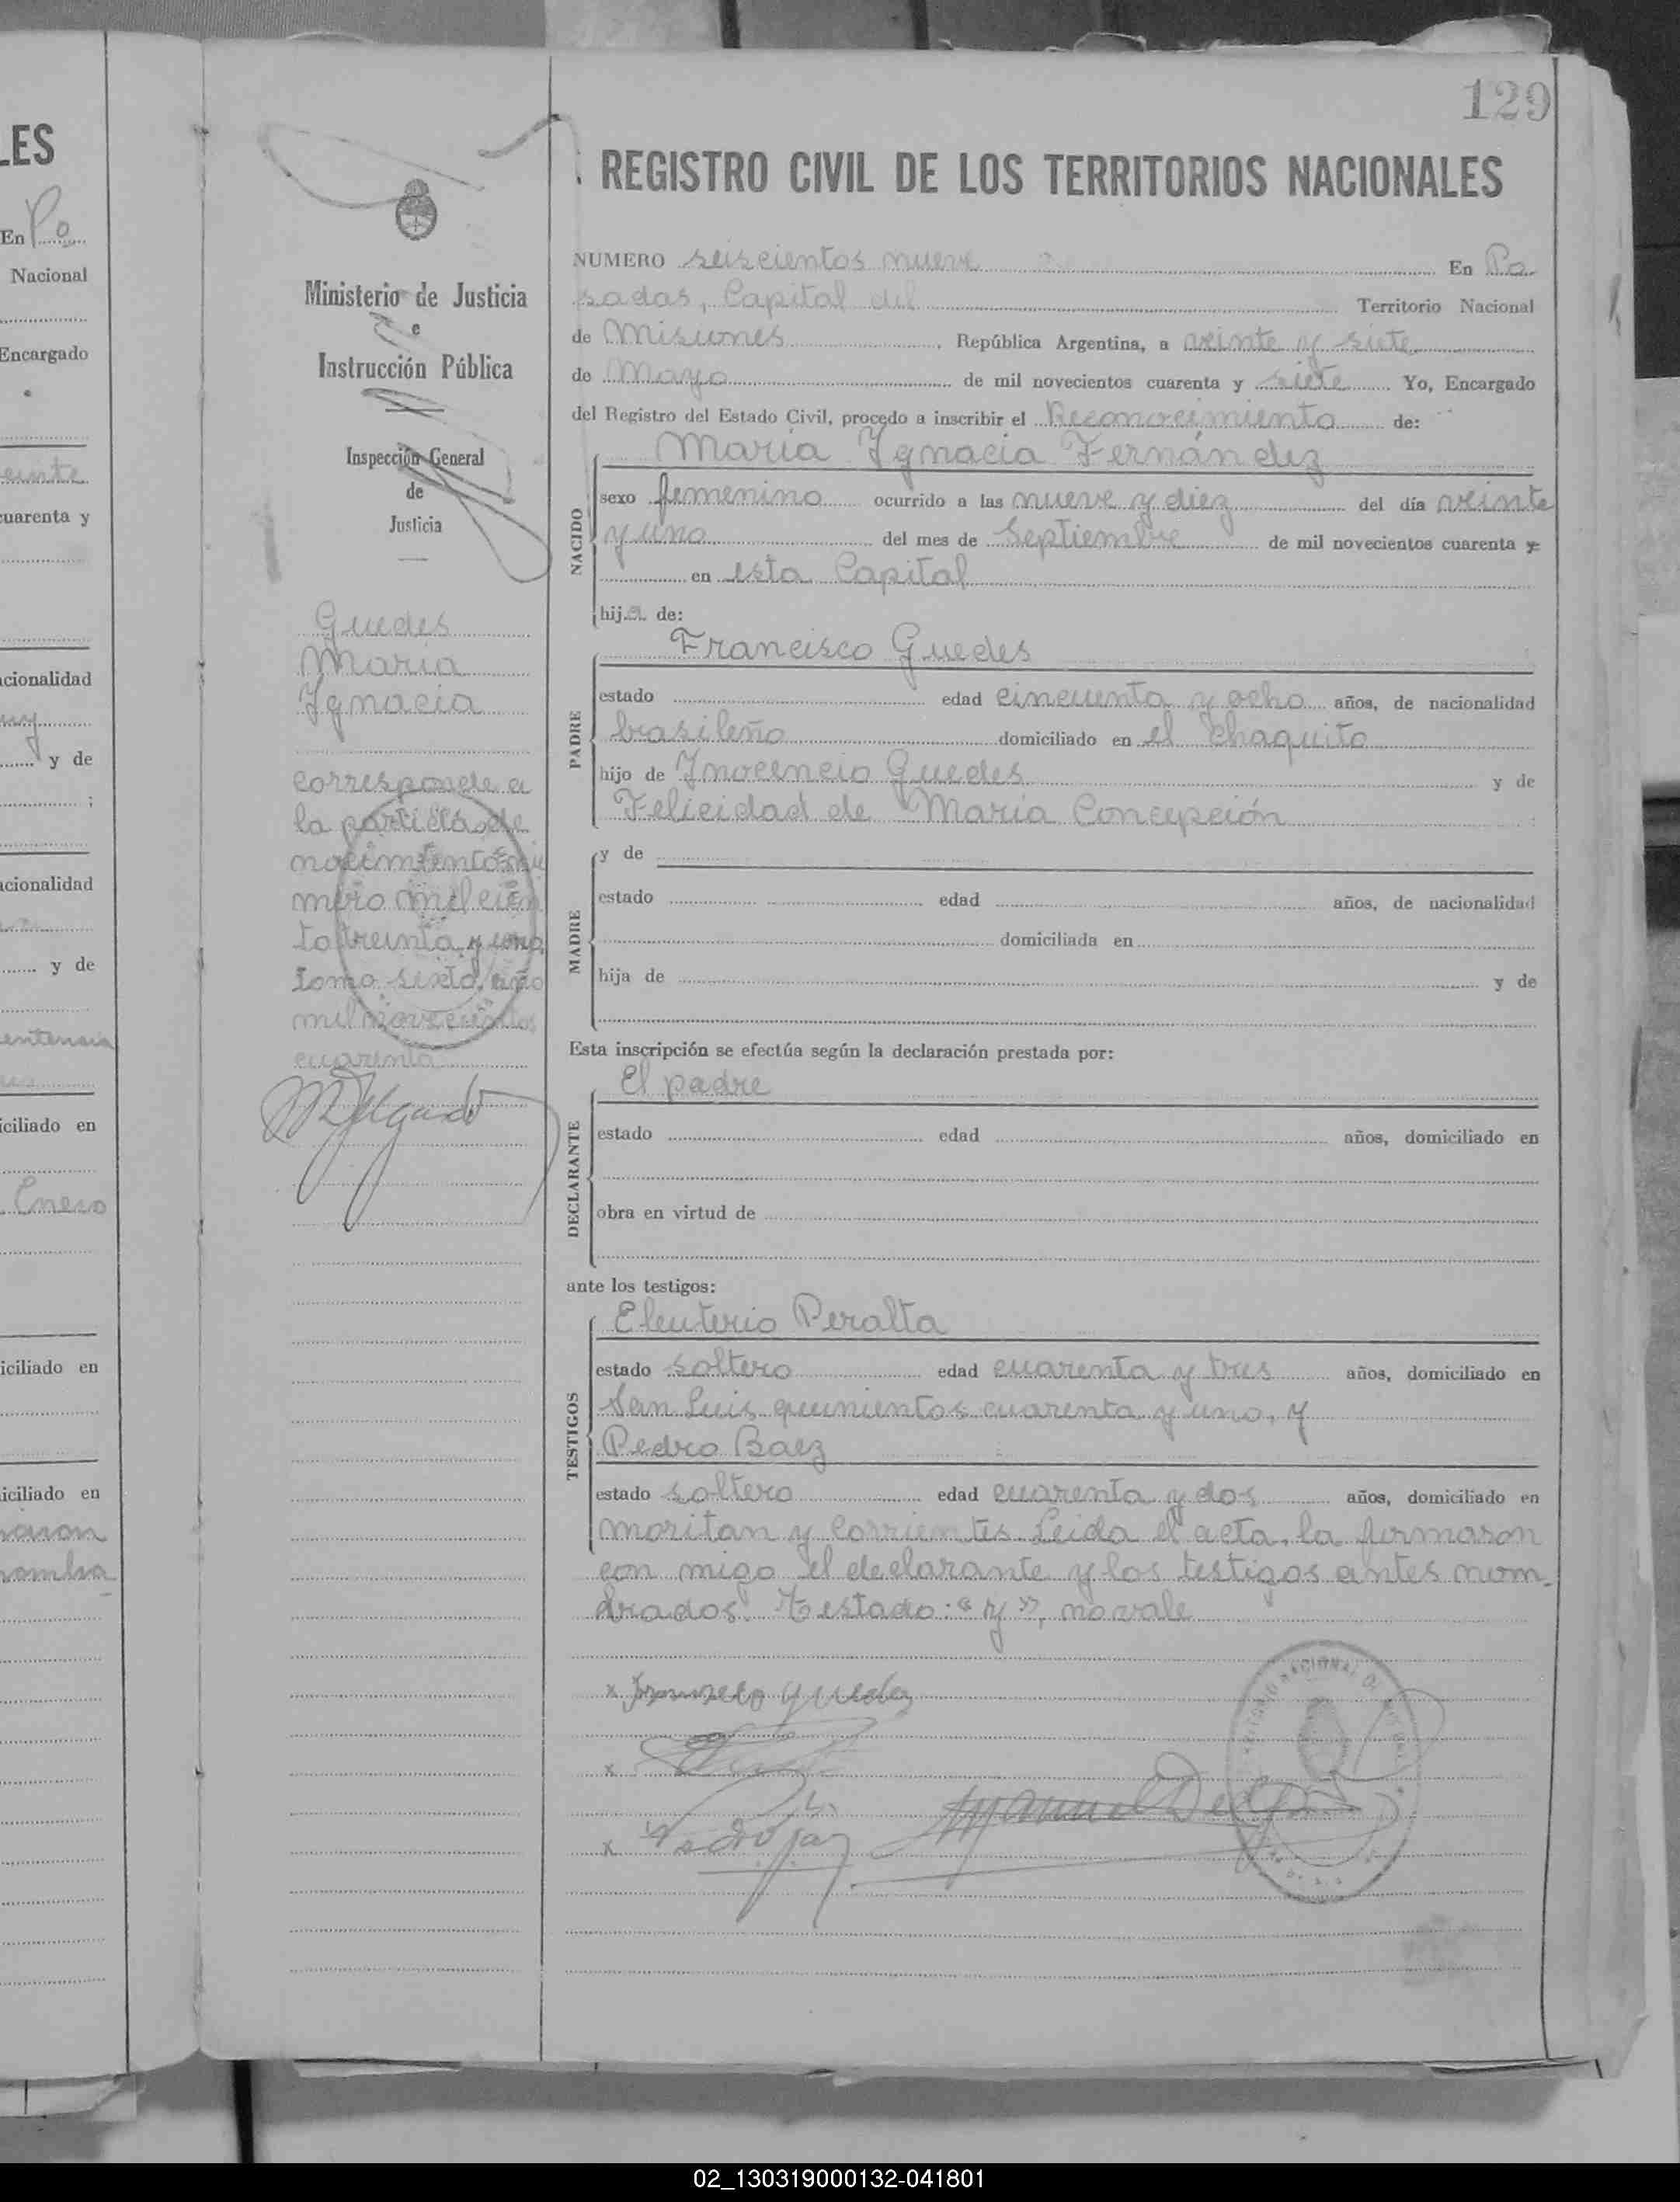 129
REGISTRO CIVIL DE LOS TERRITORIOS NACIONALES
NUMERO seiscientos nueve En Po
sadas, Capital del Territorio Nacional
de Misiones, República Argentina, a veinte y siete
de Mayo de mil novecientos cuarenta y siete Yo, Encargado
del Registro del Estado Civil, procedo a inscribir el Reconocimiento de:
NACIDO
María Ygnacia Fernández
sexo femenino ocurrido a las nueve y diez del día veinte
y uno del mes de Septiembre de mil novecientos cuarenta y
en esta Capital
hija de:
PADRE
Francisco Guedes
estado edad cincuenta y ocho años, de nacionalidad
brasileño domiciliado en el Chaquito
hijo de Ynocencio Guedes y de
Felicidad de María Concepción
MADRE
y de
estado edad años, de nacionalidad
domiciliada en
hija de y de
Esta inscripción se efectúa según la declaración prestada por:
DECLARANTE
El padre
estado edad años, domiciliado en
obra en virtud de
ante los testigos:
TESTIGOS
Eleuterio Peralta
estado soltero edad cuarenta y tres años, domiciliado en
San Luis quinientos cuarenta y uno, y
Pedro Baez
estado soltero edad cuarenta y dos años, domiciliado en
Moritan y Corrientes. Leida el acta, la firmaron
con migo el declarante y los testigos antes nom-
brados. Testado: "y", no vale
x Francisco Guedes
x
x Pedro Baez
Ministerio de Justicia
e
Instrucción Pública
Inspección General
de
Justicia
Guedes
María
Ygnacia
corresponde a
la partida de
nacimiento nú
mero mil cien
to treinta y uno
tomo sexto, año
mil novecientos
cuarenta
LES
En Po
Nacional
Encargado
veinte
cuarenta y
nacionalidad
uy
y de
;
nacionalidad
y de
sentencia
domiciliado en
Enero
domiciliado en
domiciliado en
02_130319000132-041801